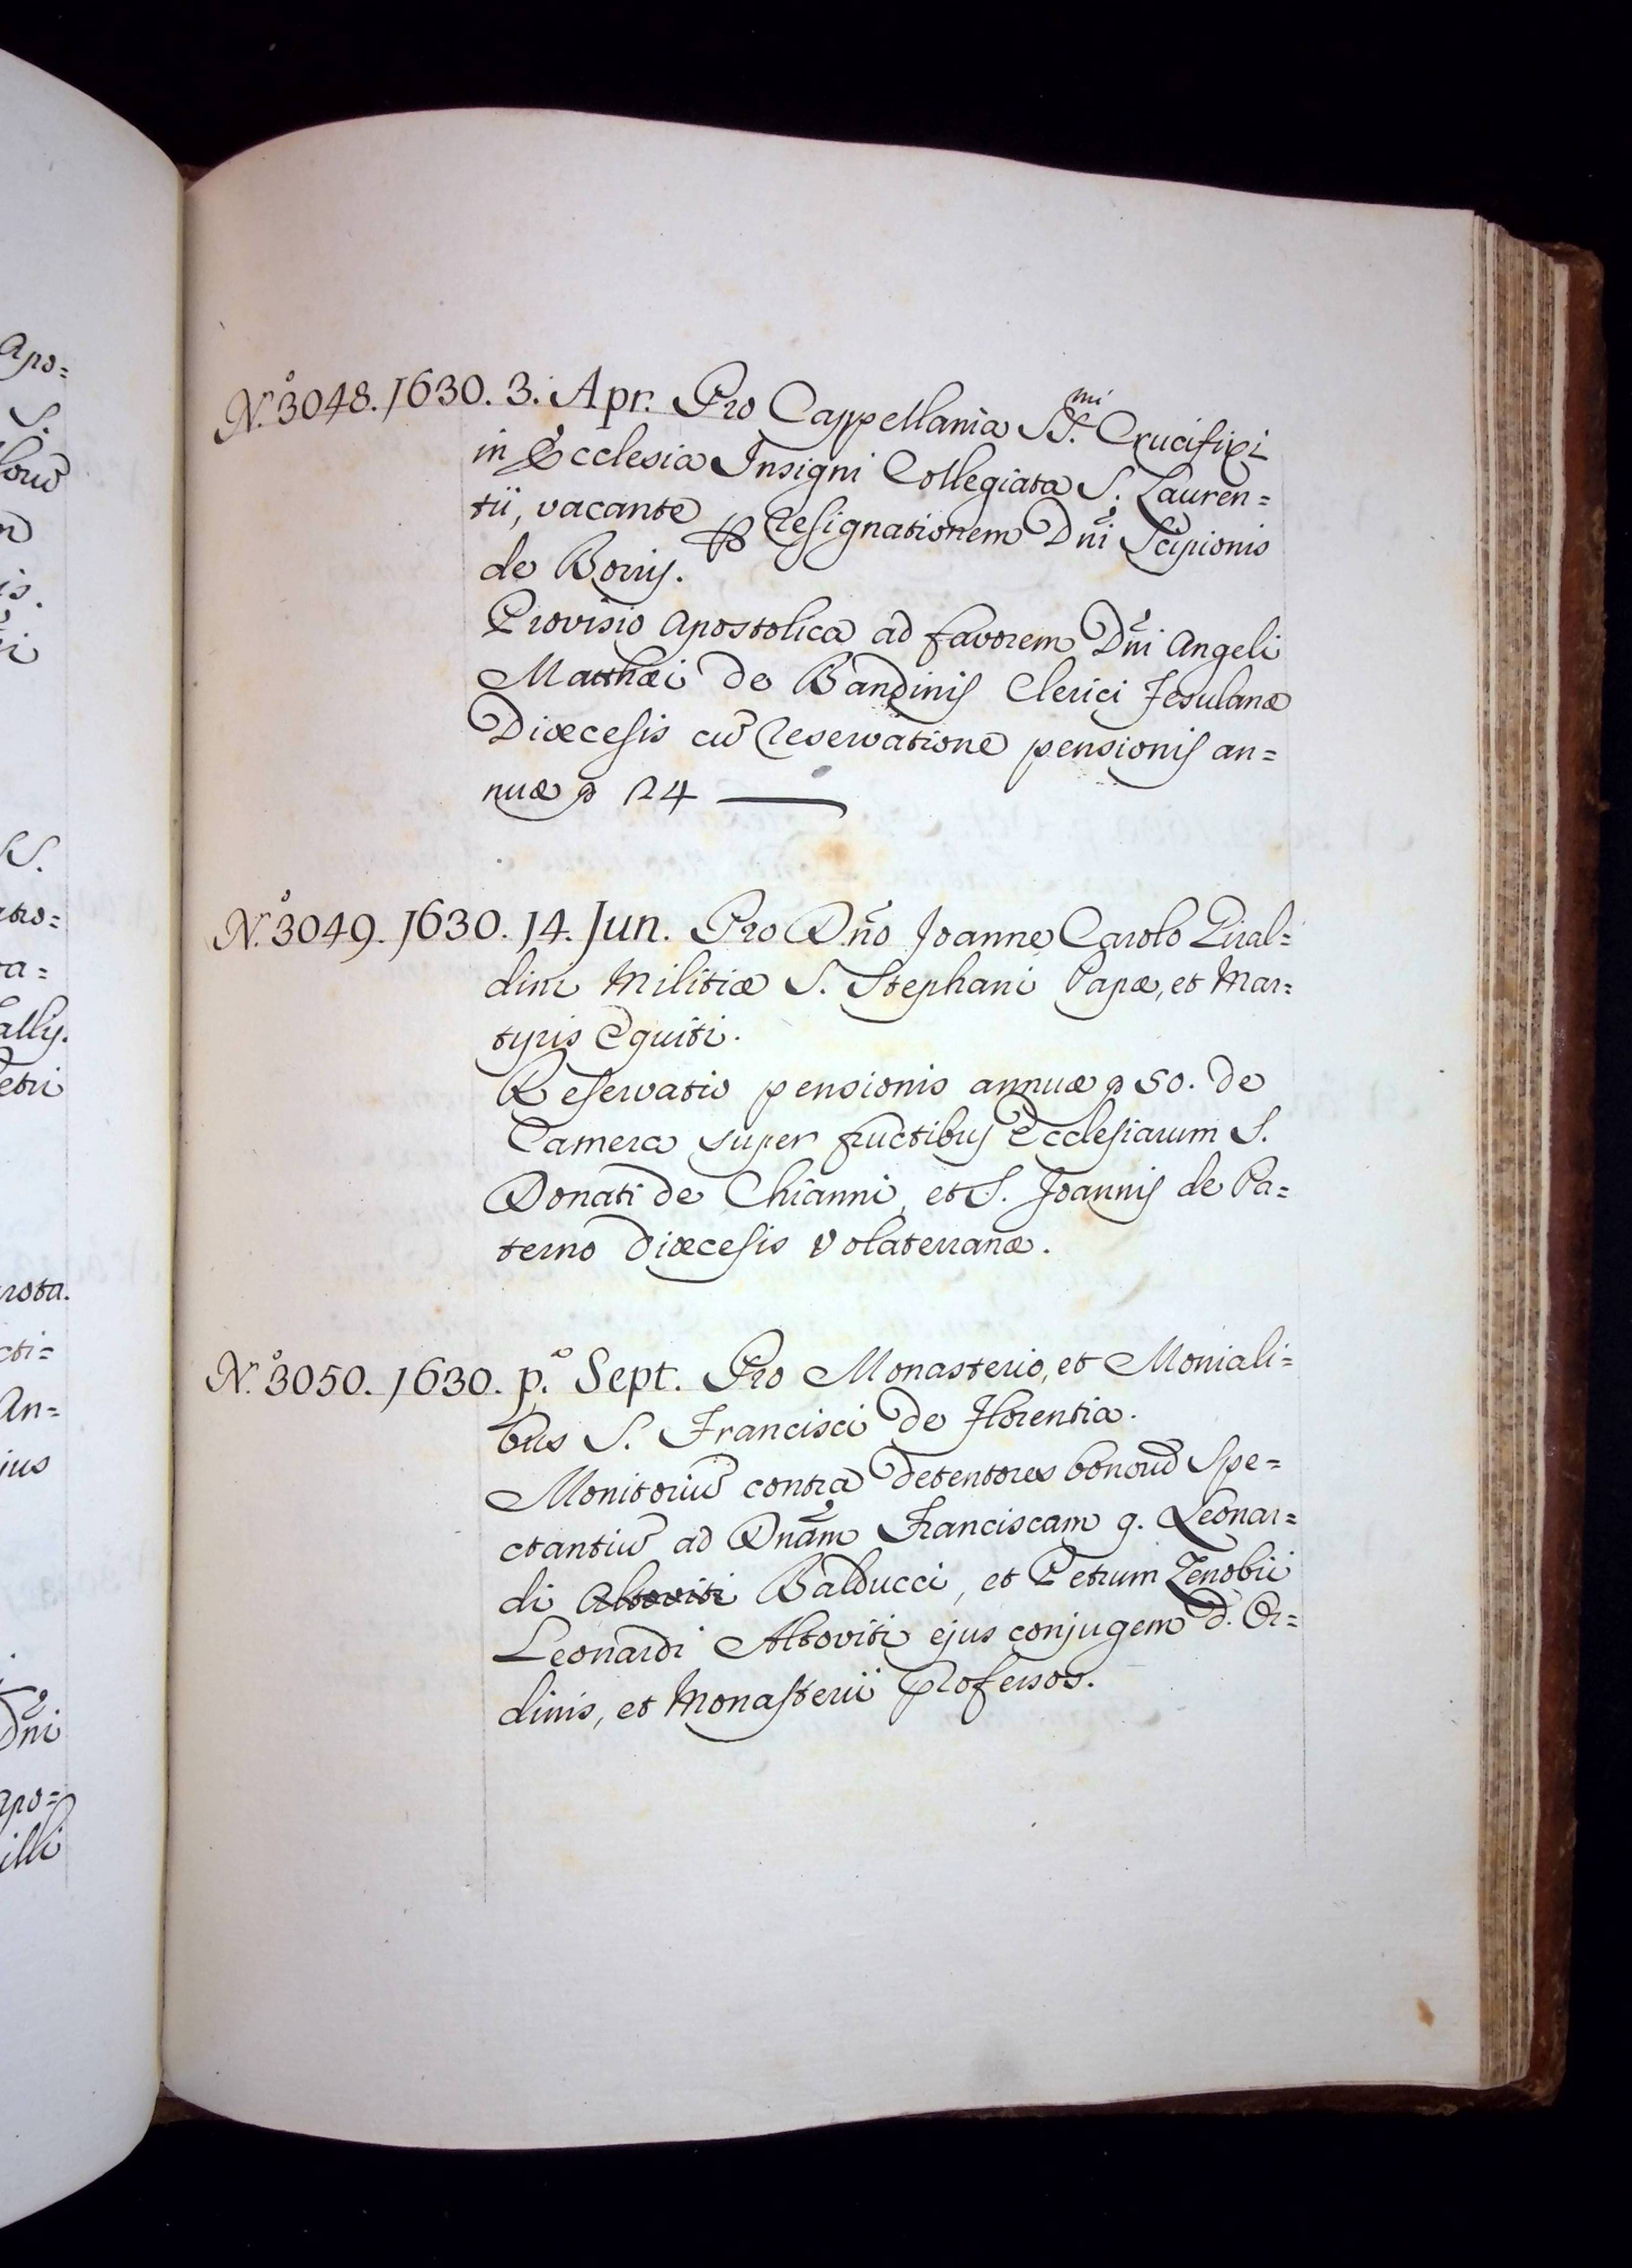 N.º 3048. 1630. 3. Apr. Pro Cappellania SS.mi Crucifixi
in Ecclesia Insigni Collegiata S. Lauren=
tii, vacante ꝑ Resignationem Dñi Scipionis
de Borris.
Provisio Apostolica ad favorem Dñi Angeli
Matthæi de Bandinis Clerici Fesulanæ
Diœcesis cũ Reservatione pensionis an=
nuæ 24
N.º 3049. 1630. 14. Jun. Pro Dño Joanne Carolo Giral=
dini Militiæ S. Stephani Papæ, et Mar=
tyris Equiti.
Reservatio pensionis annuæ 50. de
Camera super fructibus Ecclesiarum S.
Donati de Chianni, et S. Joannis de Pa=
terno Diœcesis Volaterranæ.
N.º 3050. 1630. p.º Sept. Pro Monasterio, et Moniali=
bus S. Francisci de Florentia.
Monitoriũ contra detentores bonorũ Spe=
ctantiũ ad Dñam Franciscam q. Leonar=
di Altoviti Balducci, et Petrum Zenobii
Leonardi Altoviti ejus conjugem d. Or=
dinis, et Monasterii Professos.
Apo=
S.
is.
SS.
atro=
ra=
ally.
etri
rota.
cti=
An=
jus
Dñi
Apo=
illi